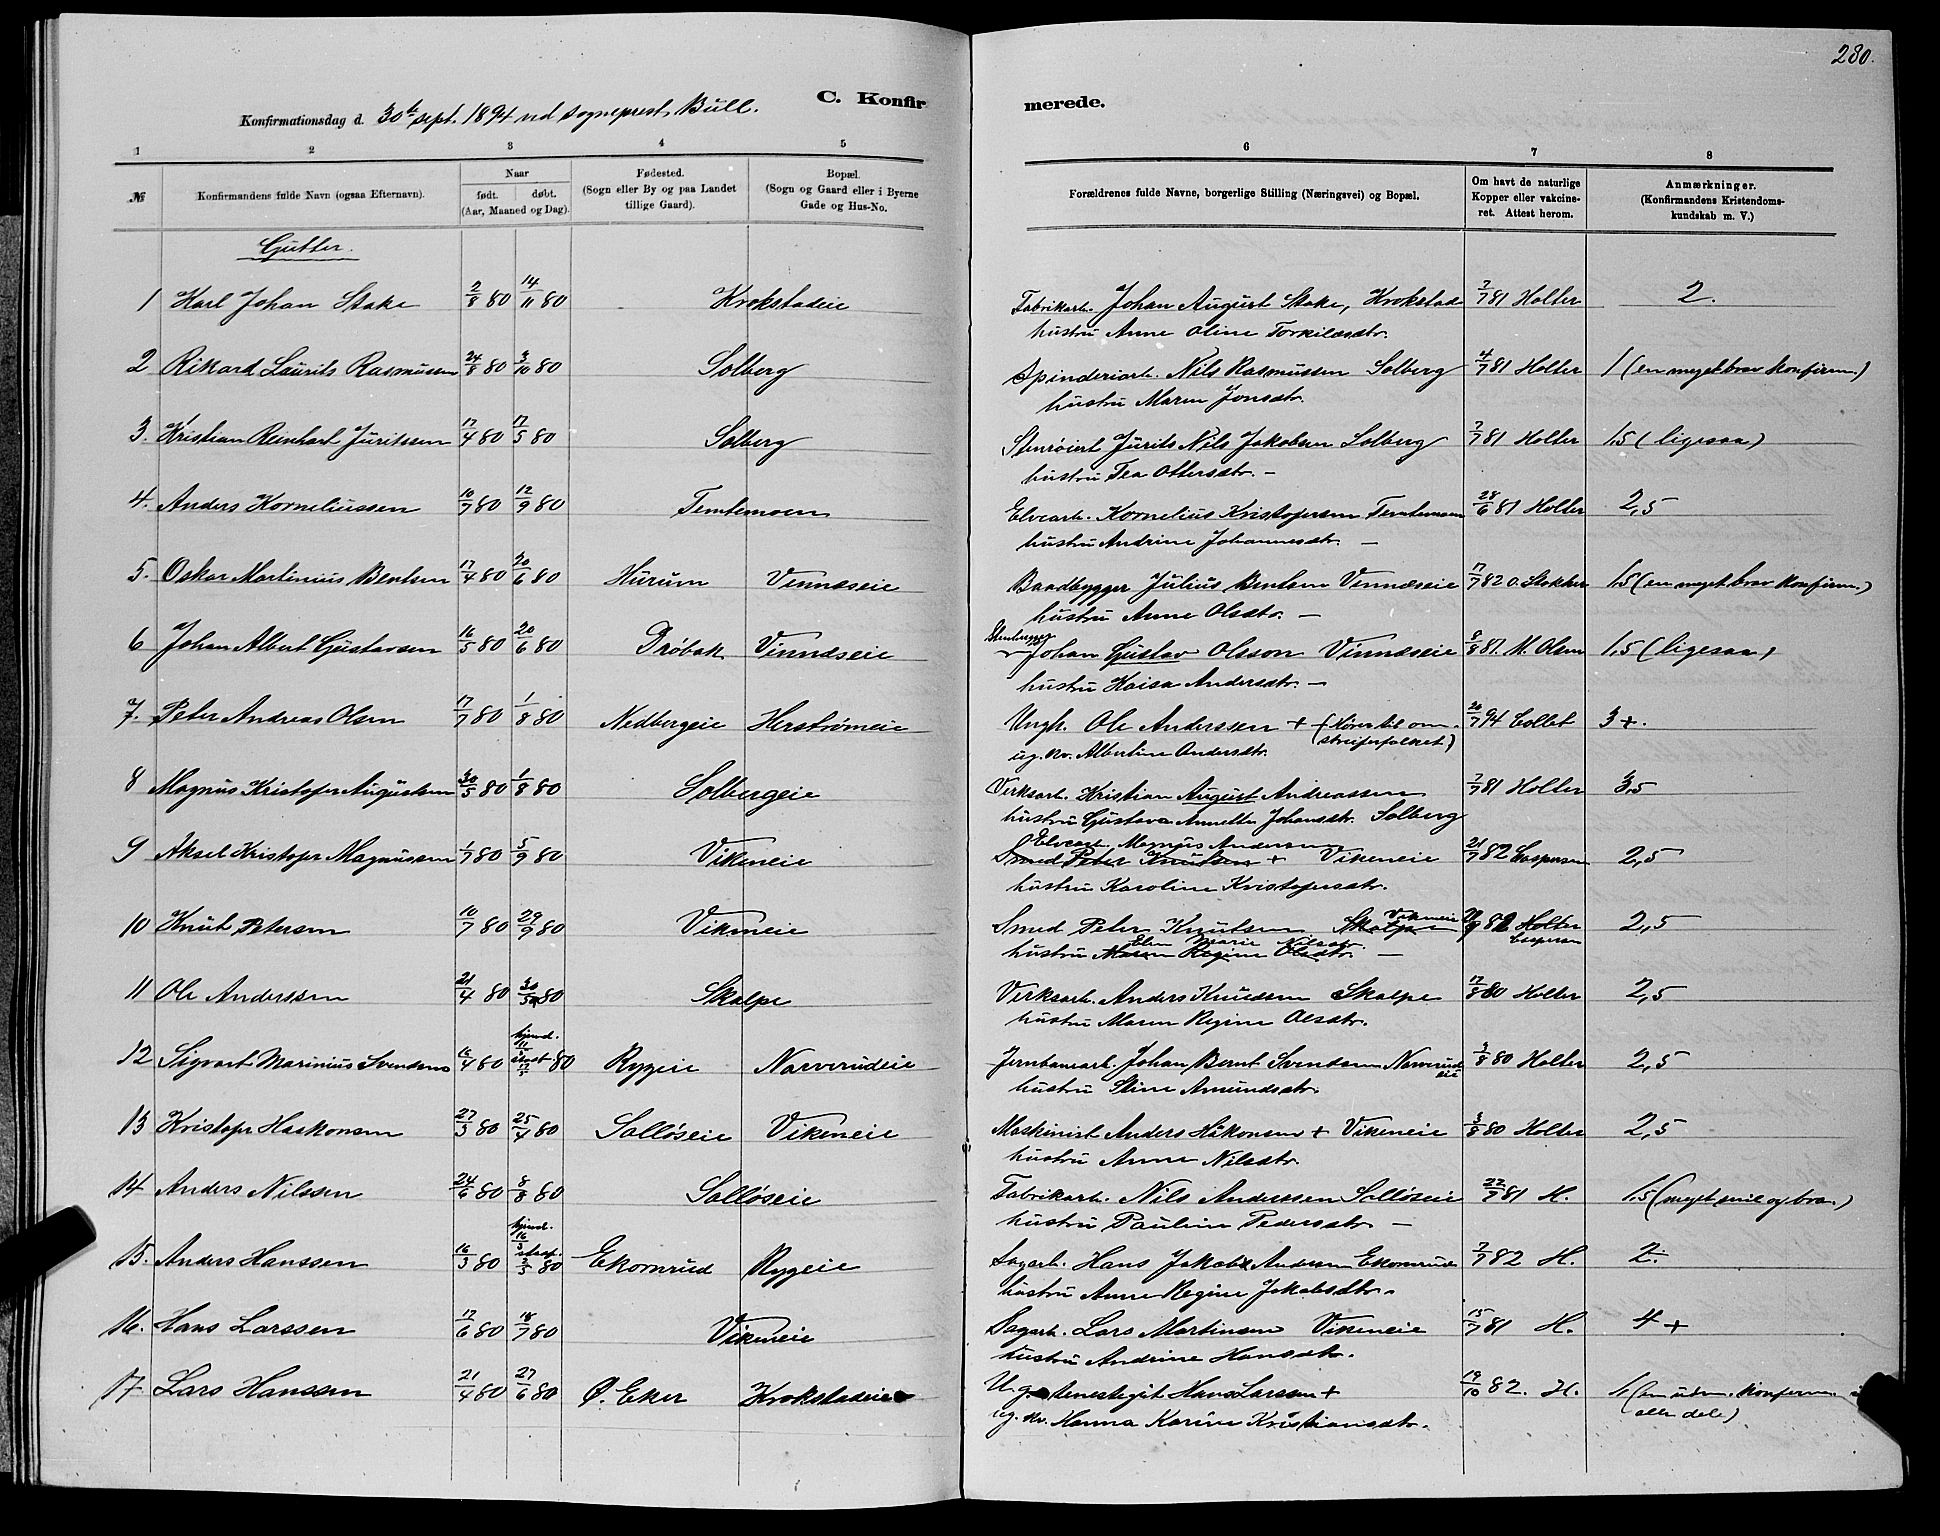 280.
C. Konfirmerede.
Konfirmationsdag d. 30te sept. 1894 ved sogneprest Bull.
1 2 3 4 5 6 7 8
№
Konfirmandens fulde Navn (ogsaa Efternavn).
Naar
født. døbt.
(Aar, Maaned og Dag).
Fødested.
(Sogn eller By og paa Landet
tillige Gaard).
Bopæl.
(Sogn og Gaard eller i Byerne
Gade og Hus-No.
Forældrenes fulde Navne, borgerlige Stilling (Næringsvei) og Bopæl.
Om havt de naturlige
Kopper eller vakcine-
ret. Attest herom.
Anmærkninger.
(Konfirmandens Kristendoms-
kundskab m. V.)
Gutter.
1 Karl Johan Stake 2/8 80 14/11 80 Krokstadeie Fabrikarb. Johan August Stake, Krokstad 7/7 81 Holter 2.
hustru Anne Oline Torkilsdtr.
2 Rikard Laurits Rasmussen 24/8 80 3/10 80 Solberg Spinderiarb. Nils Rasmussen Solberg 4/7 81 Holter 1 (en meget brav konfirm.)
hustru Maren Jonsdtr.
3. Kristian Reinhart Juritssen 17/4 80 17/5 80 Solberg Jurits Nils Jakobsen Solberg 7/7 81 Holter 1,5 (ligesaa)
hustru Tea Ottersdtr. —
4. Anders Korneliussen 10/7 80 12/9 80 Temtemoen Elvearb. Kornelius Kristofersen Temtemoen 28/6 81 Holter 2,5
hustru Andrine Johannesdtr. —
5. Oskar Martinius Bentsen 17/4 80 20/6 80 Hurum Vinnæseie Baadbygger Julius Bentsen Vinnæseie 17/7 82 O. Stokker 1,5 (en meget brav konfirm.)
hustru Anne Olsdtr. —
6 Johan Albert Gustavsen 16/5 80 20/6 80 Drøbak Vinnæseie Johan Gustav Olsson Vinnæseie 8/8 81. M. Olsen 1,5 (ligesaa)
hustru Kaisa Andersdtr. —
7. Peter Andreas Olsen 17/7 80 1/8 80 Nedbergeie Herstrømeie Ungk. Ole Anderssen + (hører til om- 26/7 94 Collet 3+.
streiferfolket)
ug. kv. Albertine Andersdtr.
8 Magnus Kristofer Augustsen 30/5 80 1/8 80 Solbergeie Verksarb. Kristian August Andreassen 7/7 81 Holter 3,5
hustru Gustava Annette Johansdtr. Solberg
9 Aksel Kristofer Magnussen 1/7 80 5/9 80 Vikeneie Elvearb. Magnus Andersen
Smed Peter Knutsen + Vikeneie 21/7 82 Caspersen 2,5
hustru Karoline Kristofersdtr.
10 Knut Petersen 10/7 80 29/9 80 Vikeneie Smed Peter Knutsen Skalpe Vikeneie 82 Holter Caspersen 2,5
Elen Marie Nilsdtr.
hustru Maren Regine Olsdtr. —
11 Ole Anderssen 21/4 80 30/5 80 Skalpe Verksarb. Anders Knudsen Skalpe 17/8 80 Holter 2,5
hustru Maren Regine Olsdtr.
12 Sigvart Marinius Svendsen 16/4 80 hjemd. stadf. 80 Rygeie Narverudeie Jernbanearb. Johan Bernt Svendsen Narverudeie 3/8 80 Holter 2,5
hustru Stine Amundsdtr.
13 Kristofer Haakonsen 27/3 80 25/4 80 Solløseie Vikeneie Maskinist Anders Håkonsen + Vikeneie 3/8 80 Holter 2,5
hustru Anne Nilsdtr.
14 Anders Nilssen 24/6 80 8/8 80 Solløseie Fabrikarb. Nils Anderssen Solløseie 22/7 81 H. 1,5 (meget snil og bra.)
hustru Pauline Pedersdtr. —
15. Anders Hanssen 16/3 80 hjemd. 16/3 stadf. 2/5 80 Ekornrud Rygeie Sagarb. Hans Jakob Andersen Ekornrud 7/7 82 H. 2.
hustru Anne Regine Jakobsdtr.
16. Hans Larssen 17/6 80 18/7 80 Vikeneie Sagarb. Lars Martinsen Vikeneie 15/7 81 H. 4+
hustru Andrine Hansdtr.
17 Lars Hanssen 21/4 80 27/6 80 Ø. Eker Krokstadeie U.g. tenestegut Hans Larssen + 19/10 82. H. 1 (en udm. konfirm. i
alle dele)
ug. kv. Hanna Karine Kristiansdtr.